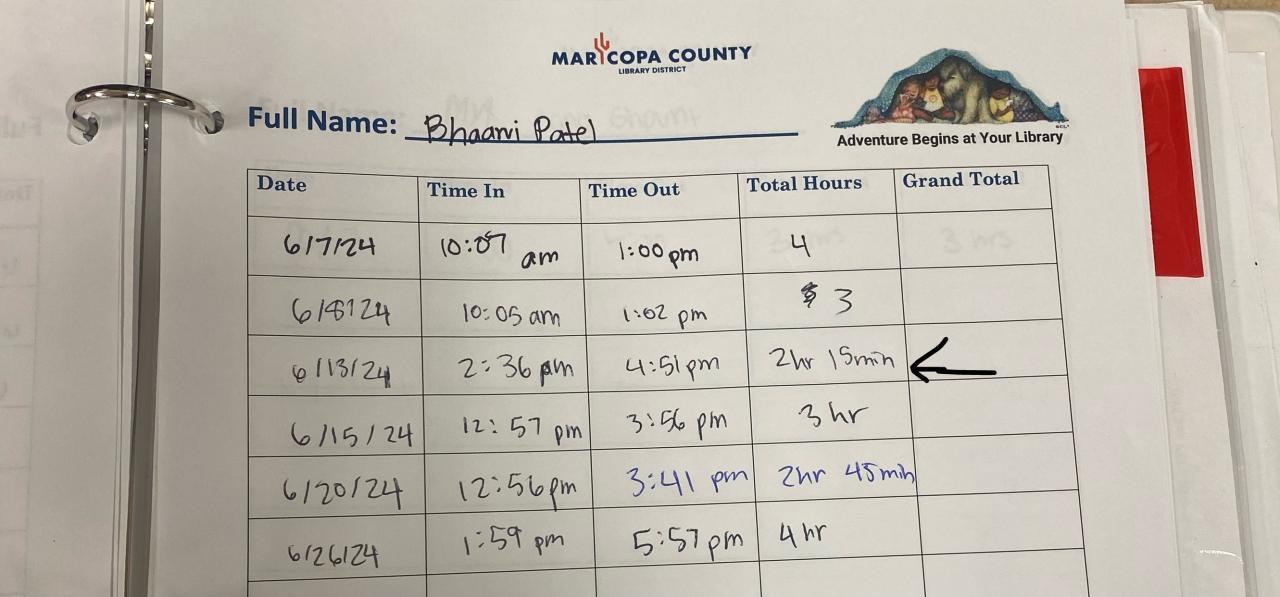 MARICOPA COUNTY
LIBRARY DISTRICT
Adventure Begins at Your Library
Full Name: Bhaavi Patel
Date Time In Time Out Total Hours Grand Total
6/7/24 10:07 am 1:00 pm 4
6/8/24 10:05 am 1:02 pm 3
6/13/24 2:36 pm 4:51 pm 2hr 15min
6/15/24 12:57 pm 3:56 pm 3 hr
6/20/24 12:56pm 3:41 pm 2hr 45min
6/26/24 1:59 pm 5:57 pm 4 hr